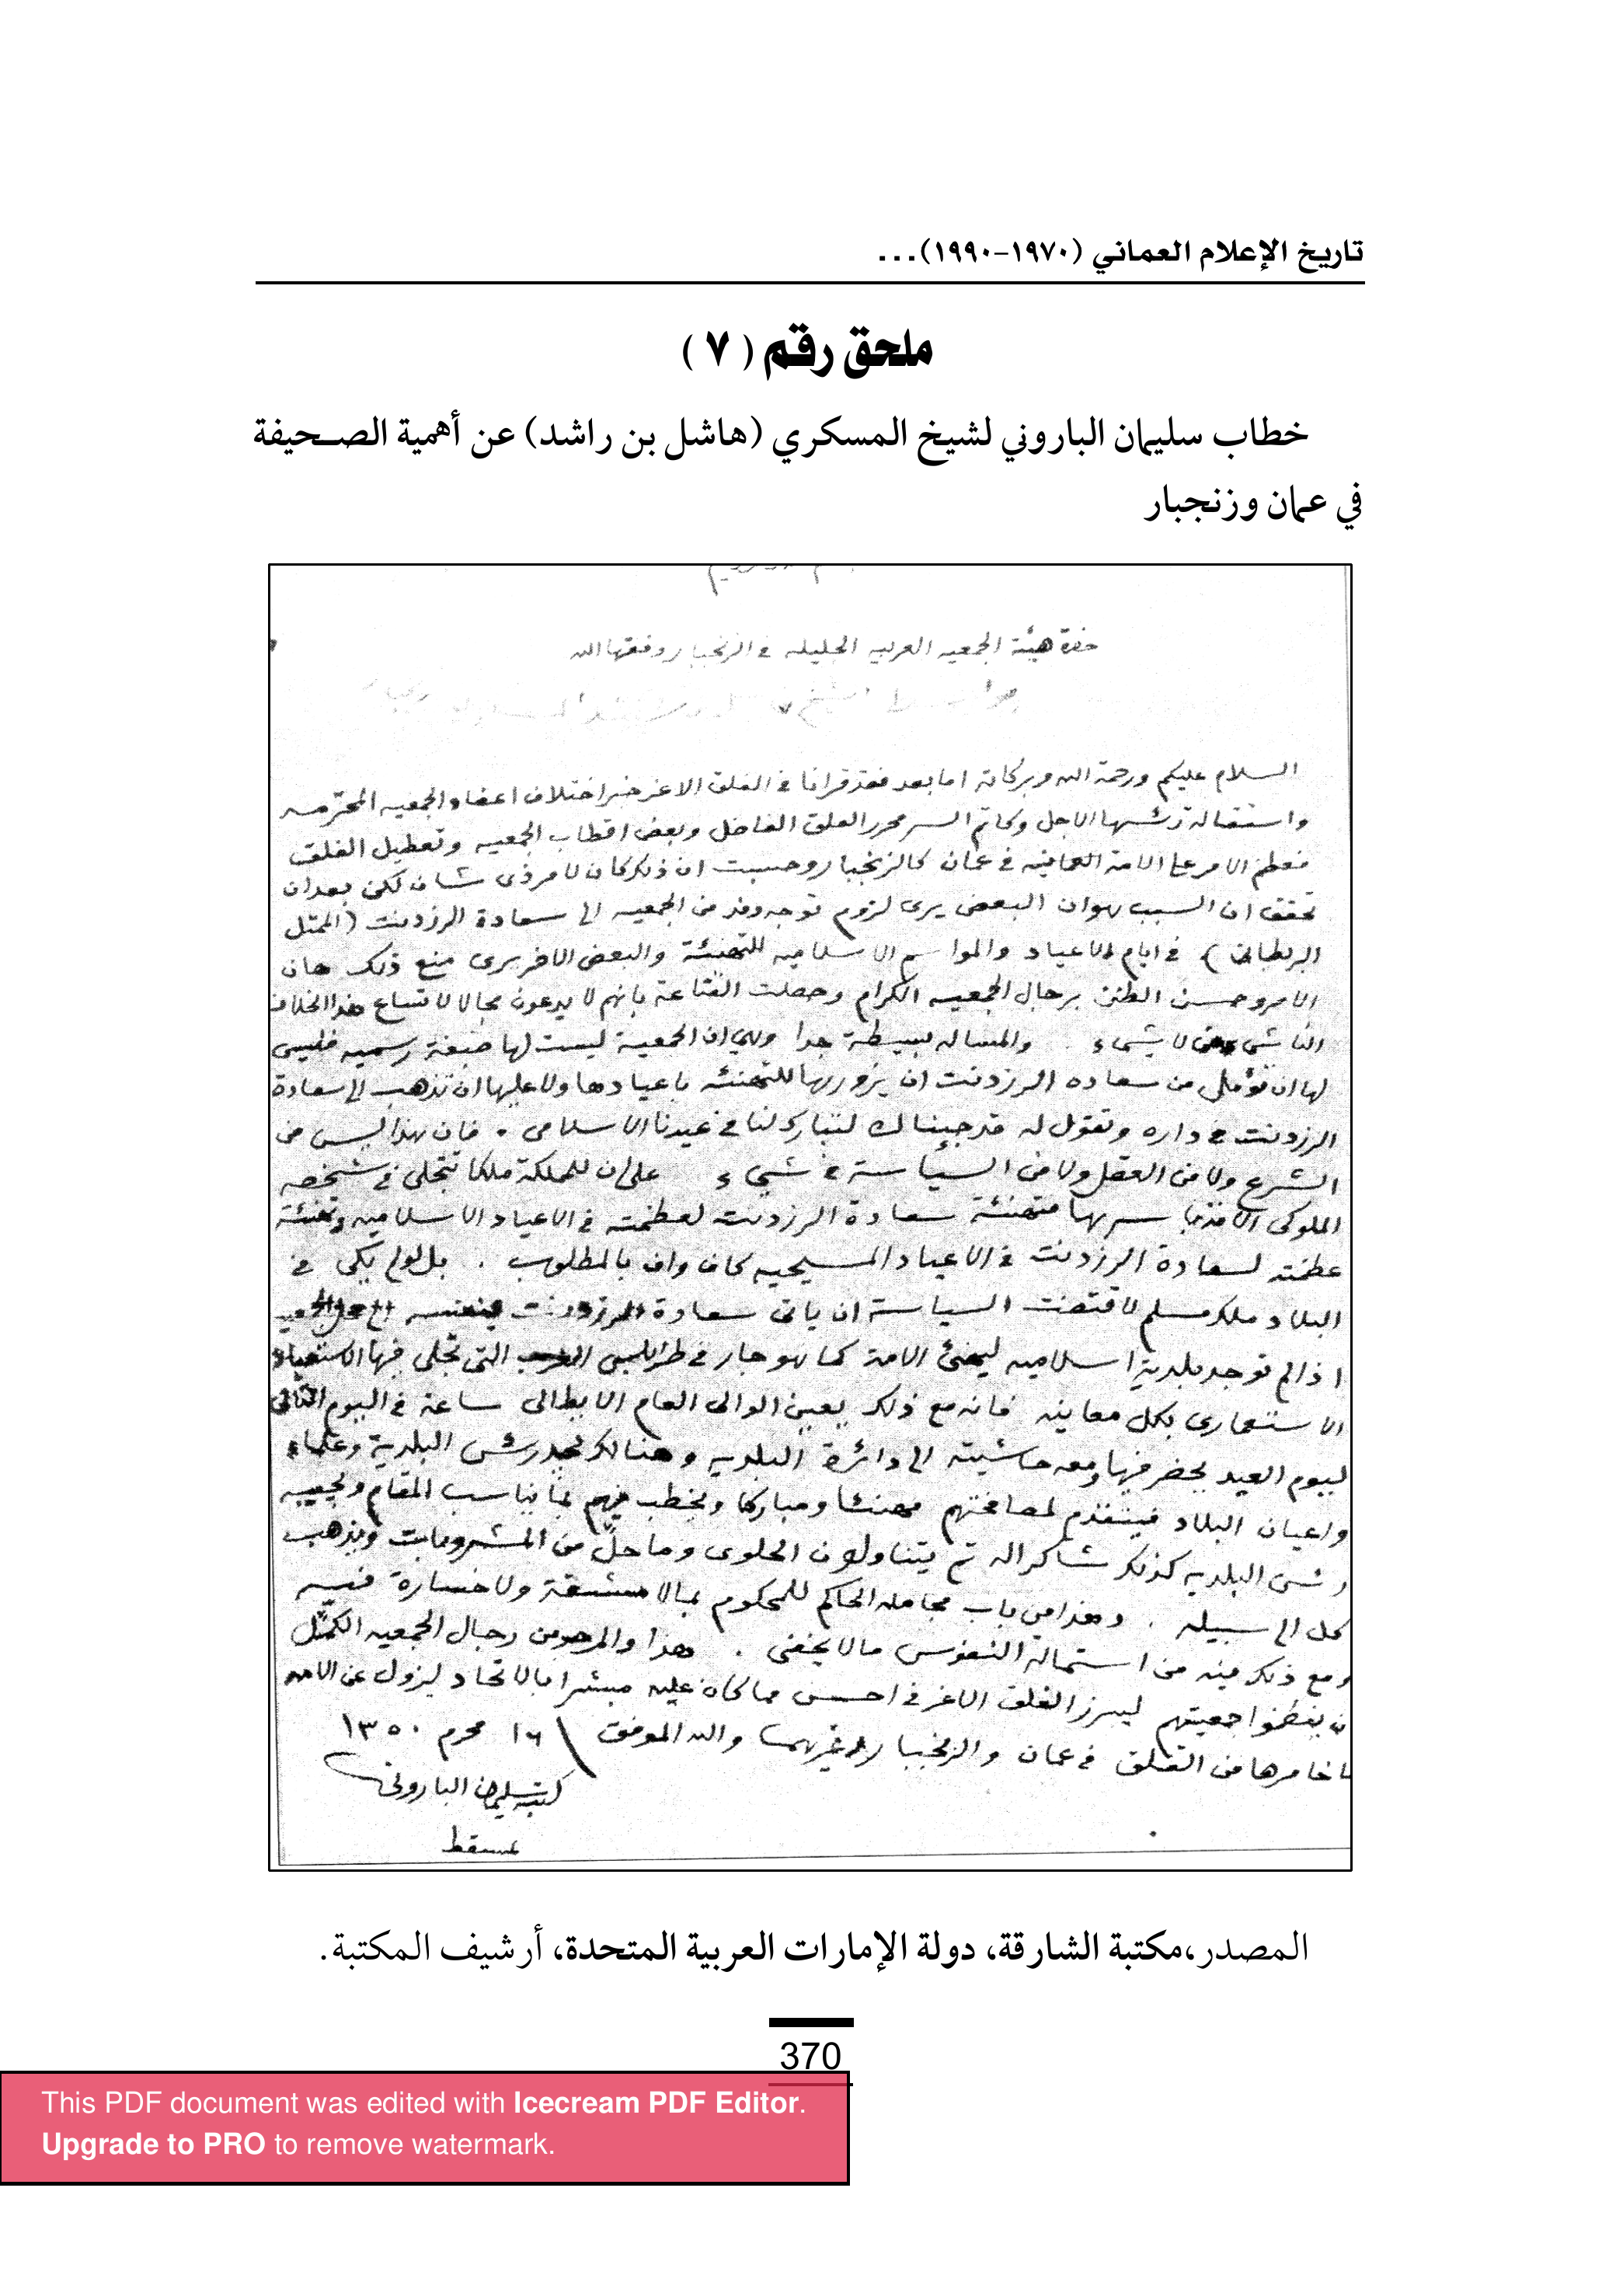 تاريخ الإعلام العماني (١٩٧٠-١٩٩٠)...
ملحق رقم ( ٧ )
خطاب سليمان الباروني لشيخ المسكري (هاشل بن راشد) عن أهمية الصـحيفة
في عمان وزنجبار
حضرة هيئة الجمعيه العربيه الجليله في الزنجبار وفقها الله
السلام عليكم ورحمة الله وبركاته اما بعد فقد قرانا في الفلق الاغر خبر اختلاف اعضاء الجمعيه المحترمه
واستقالة رئسها الاجل وكاتم السر محرر الفلق الفاضل وبعض اقطاب الجمعيه وتعطيل الفلق
فعظم الامر على الامة العمانيه في عمان كالزنجبار وحسبت ان ذلك كان لامر ذى شان لكن بعد ان
تحقق ان السبب هو ان البعض يرى لزوم توجه وفد من الجمعيه الى سعادة الرزدنت (الممثل
البريطانى) في ايام الاعياد والمواسم الاسلاميه للتهنئة والبعض الاخر يرى منع ذلك هان
الامر وحسن الظن برجال الجمعيه الكرام وحصلت القناعة بانهم لا يدعون مجالا لاتساع هذا الخلاف
الناشيء من لا شيء . والمساله بسيطة جدا وهي ان الجمعية ليست لها صبغة رسميه فليس
لها ان تؤمل من سعاده الرزدنت ان يزورها للتهنئه باعيادها ولا عليها ان تذهب الى سعادة
الرزدنت في داره وتقول له قد جيناك لتبارك لنا في عيدنا الاسلامى . فان هذا ليس من
الشرع ولا من العقل ولا من السياسة في شيء على ان للمملكة ملكا تتجلى في شخصه
الملوكى سعادة الرزدنت لعظمته في الاعياد الاسلاميه وتهنئة
عظمته لسعادة الرزدنت في الاعياد المسيحيه كاف واف بالمطلوب . بل لو لم يكن في
البلاد ملك مسلم لاقتضت السياسة ان ياتى سعادة الرزدنت بنفسه الجمعيه
اذا لم توجد بلدية اسلاميه ليهنئ الامة كما هو جار في طرابلس الغرب التى تجلى فيها الاستعباد
الاستعمارى بكل معانيه فانه مع ذلك يعين الوالى العام الايطالى ساعة في اليوم التالى
ليوم العيد يحضر فيها ومعه حاشيته الى دائرة البلديه وهنالك يجد رئس البلدية وعلماء
واعيان البلاد فيتقدم لمصافحتهم مهنئا ومباركا ويخطب فيهم بما يناسب المقام ويجيبه
رئس البلديه كذلك شاكرا له ثم يتناولون الحلوى وما حل من المشروبات ويذهب
كل الى سبيله . وهذا من باب مجاملة الحاكم للمحكوم بما لا مشقة ولا خسارة فيه
ومع ذلك فيه من استمالة النفوس مالا يخفى . هذا والمرجو من رجال الجمعيه الكمّل
ان ينظموا جمعيتهم ليبرز الفلق الاغر في احسن مما كان عليه مبشرا بالاتحاد ليزول عن الامه
ما خامرها من القلق في عمان والزنجبار وغيرهما والله الموفق ١٦ محرم ١٣٥٠
كتبه سليمان الباروني
بمسقط
المصدر،مكتبة الشارقة، دولة الإمارات العربية المتحدة، أرشيف المكتبة.
370
This PDF document was edited with Icecream PDF Editor.
Upgrade to PRO to remove watermark.